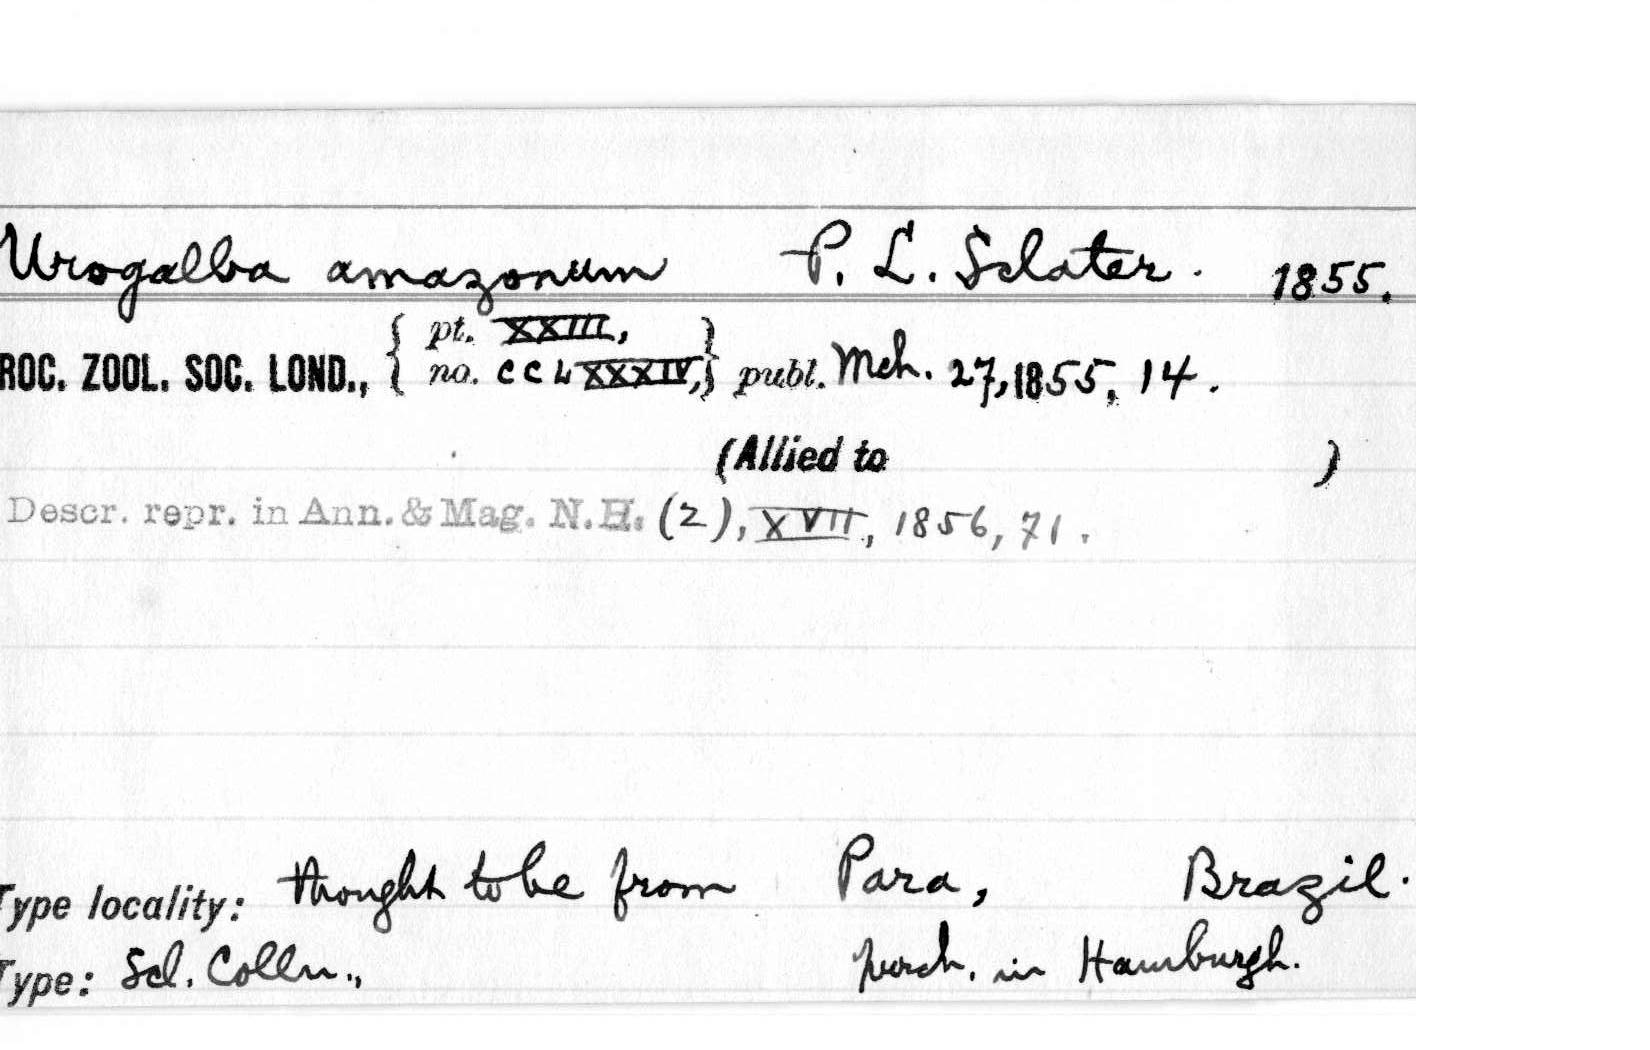 Urogalba amazonum P. L. Sclater. 1855.
{ pt. XXIII, }
ROC. ZOOL. SOC. LOND., { no. CCLXXXIV, } publ. Mch. 27, 1855, 14.
(Allied to )
Descr. repr. in Ann. & Mag. N.H. (2), XVII, 1856, 71.
Type locality: thought to be from Para, Brazil.
Type: Scl. Colln., purch. in Hamburgh.